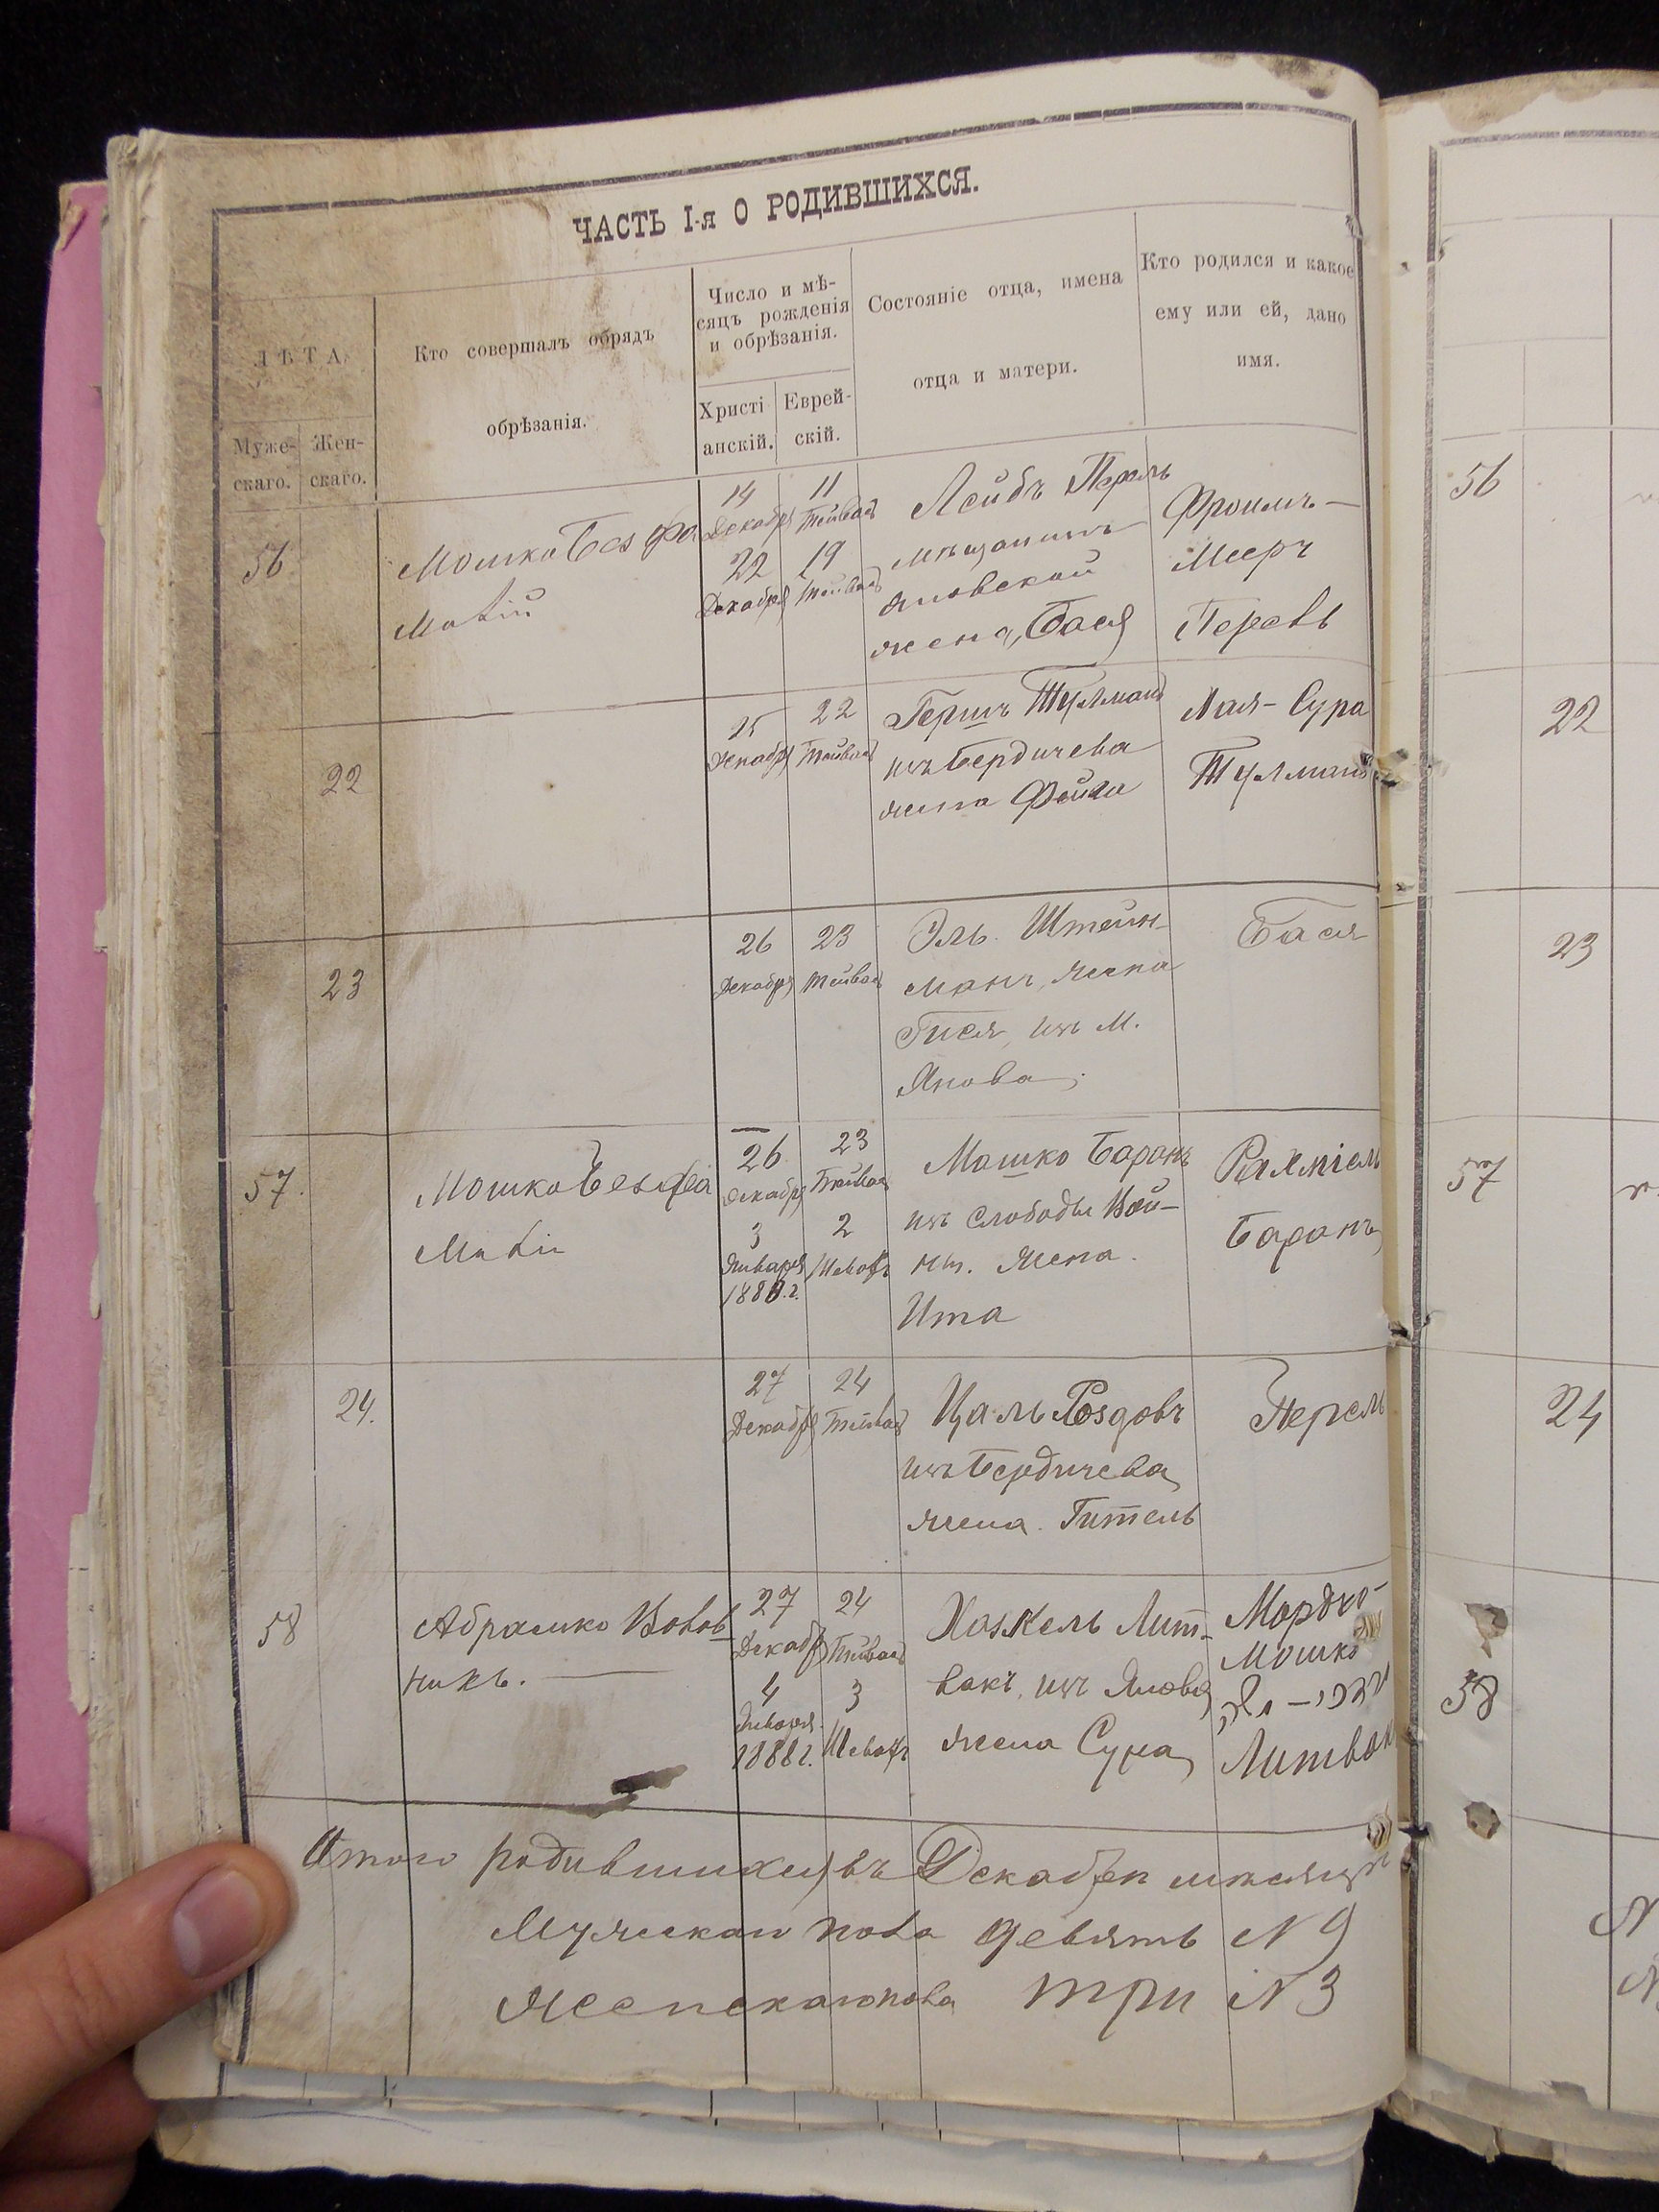 ЧАСТЬ I-я О РОДИВШИХСЯ.
ЛѢТА
Муже-
скаго.
Жен-
скаго.
Кто совершалъ обрядъ
обрѣзанія.
Число и мѣ-
сяцъ рожденія
и обрѣзанія.
Христі
анскій.
Еврей-
скій.
Состояніе отца, имена
отца и матери.
Кто родился и какое
ему или ей, дано
имя.
56
Мошко
14
Декабря
22
Декабря
11
Тейвас
19
Тейвас
Лейбъ Перель
мѣщанинъ
яновской
жена, Бася
Фроимъ-
Мееръ
22
25
Декабря
22
Тейвас
Гершъ
изъ Бердичева
жена Фейга
Лая-Сура
23
26
Декабря
23
Тейвас
Эль. Штейн-
манъ, жена
Гися, изъ М.
Янова.
Бася
57.
Мошко
26
Декабря
3
Января
23
Тейвас
2
Шеватъ
Мошко Баранъ
изъ слободы Вой-
жена.
Ита
Рахміель
Баранъ
24.
27
Декабря
24
Тейвас
Цаль
изъ Бердичева
жена. Гитель
Перель
58
Абрамко
27
Декабря
4
Января
1888 г.
24
Тейвас
3
Шеватъ
Хаскель Лит-
вакъ, изъ Янова
жена Сура
Мордко-
Мошко
Литвак
Итого родившихся въ Декабрѣ мѣсяцѣ
Мужскаго пола девять N 9
Женскаго пола три N 3
56
22
23
57
24
58